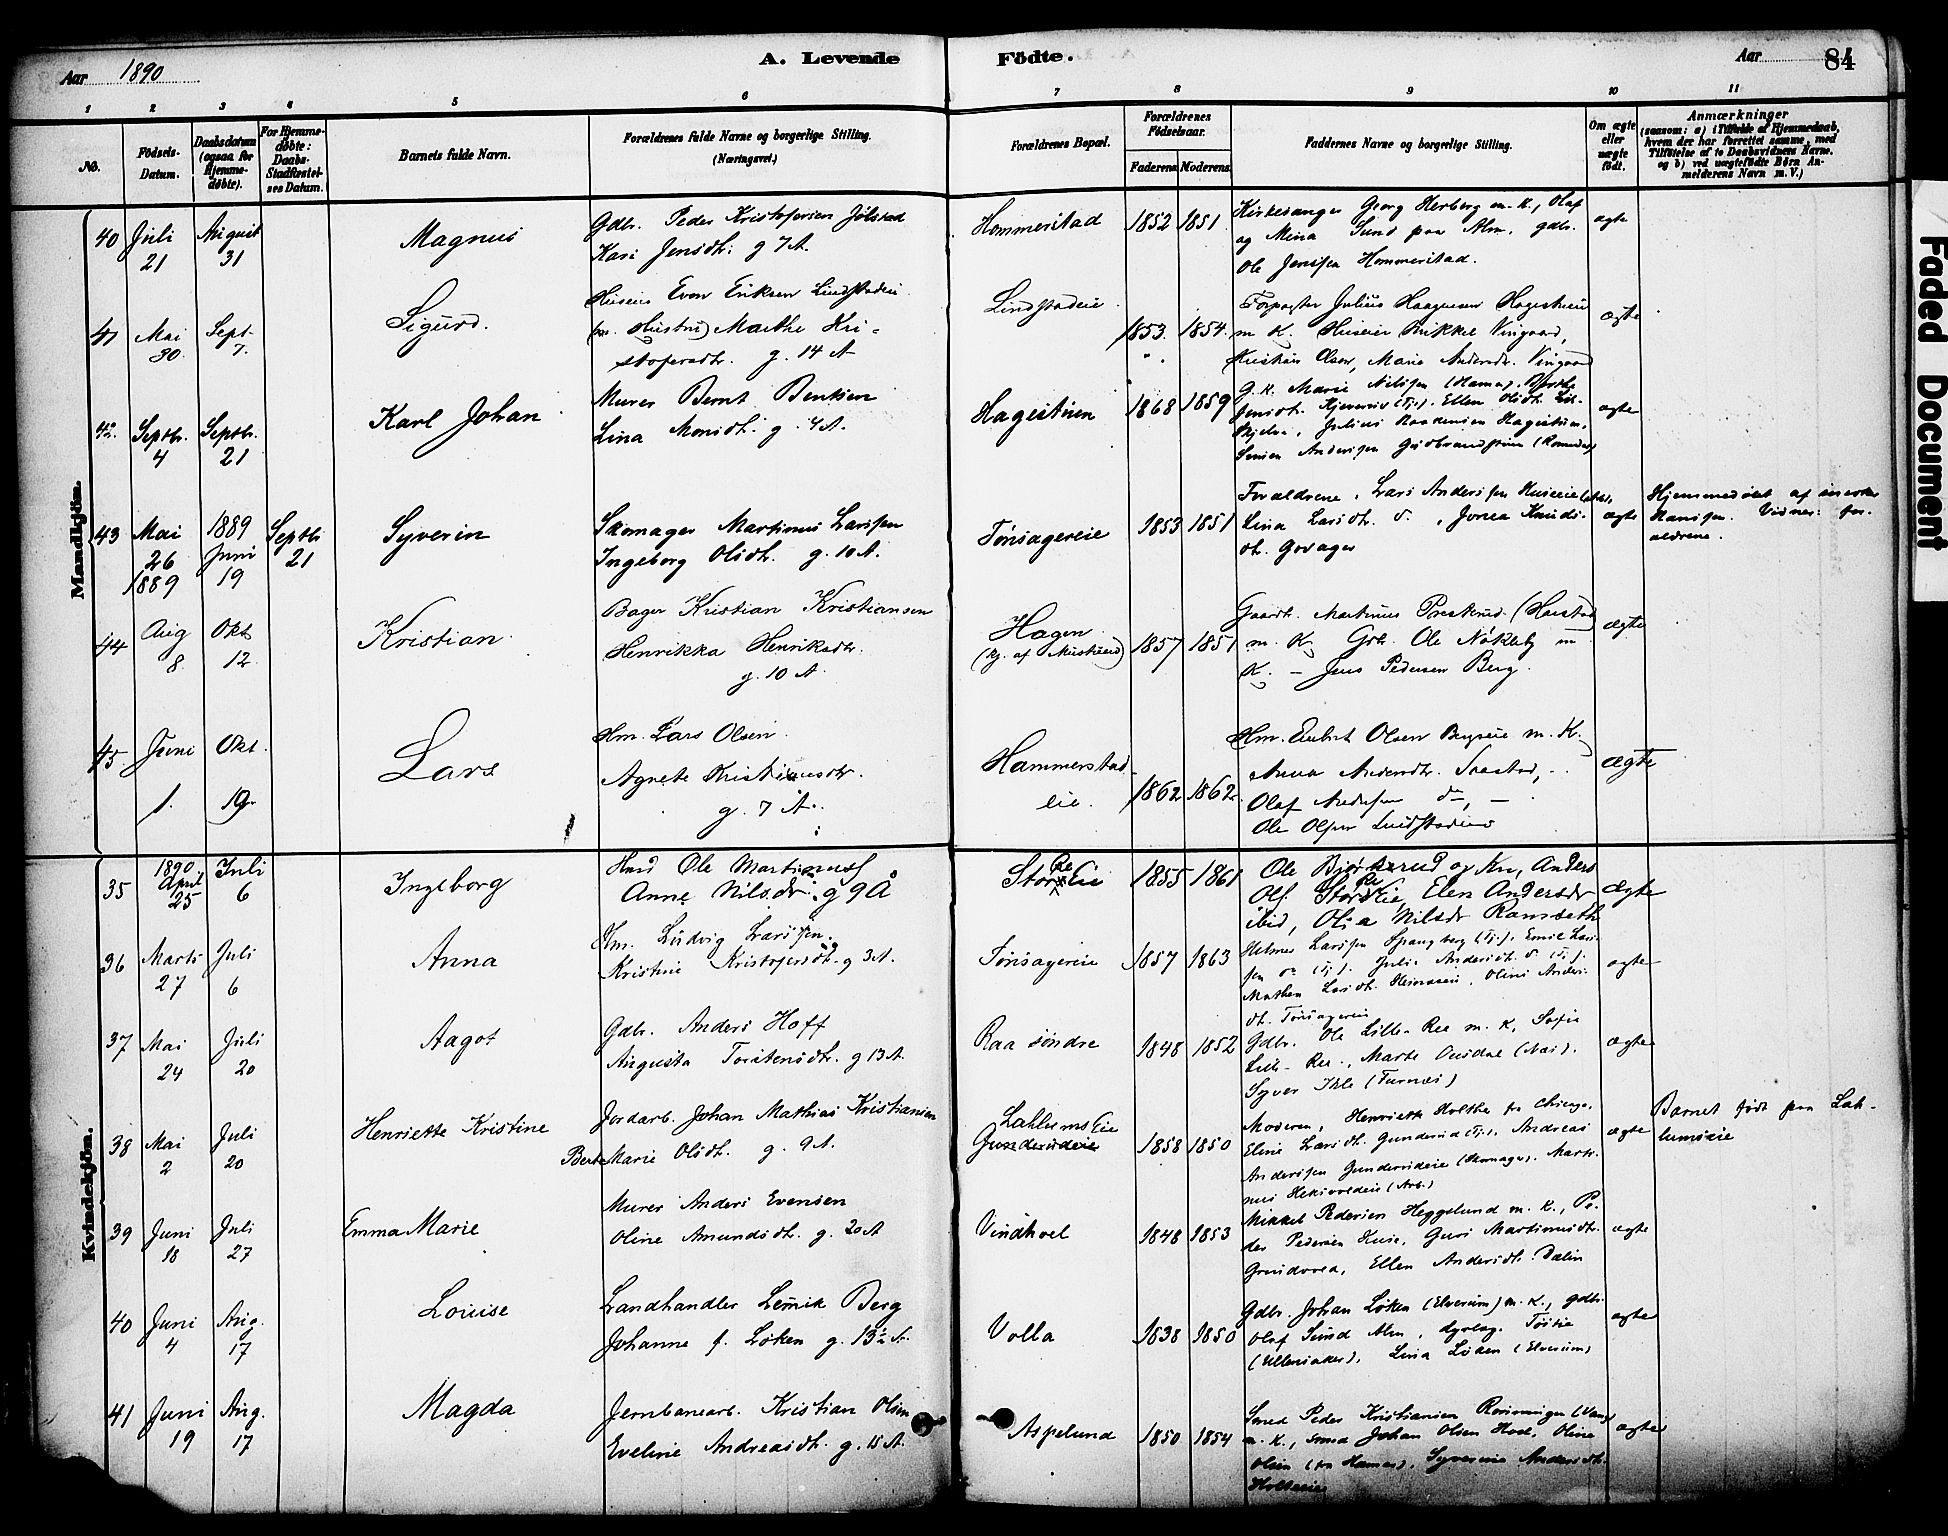 Aar 1890
A. Levende Födte.
Aar
84
1 2 3 4 5 6 7 8 9 10 11
No.
Födsels-Datum.
Daabsdatum (ogsaa for Hjemmedöbte).
For Hjemmedöbte: Daabs-Stadfæstelses Datum.
Barnets fulde Navn.
Forældrenes fulde Navne og borgerlige Stilling. (Næringsvei.)
Forældrenes Bopæl.
Forældrenes Födselsaar.
Faderens Moderens
Faddernes Navne og borgerlige Stilling.
Om ægte eller uægte födt.
Anmærkninger
(saasom: a) i Tilfælde af Hjemmedaab, hvem der har forrettet samme, med Tilföielse af to Daabsvidners Navne, og b) ved uægtefödte Börn Anmelderens Navn m. V.)
Faded Document
Mandkjön.
40 Juli 21 August 31 Magnus
Gdbr. Peder Kristofersen Jølstad
Kari Jensdtr. g 7 A.
Hommerstad 1852 1851
Kirkesanger Georg Herberg m. K., Olaf
og Mina Sund paa Alm, gdbr.
Ole Jenssen Hommerstad.
ægte
41 Mai 30. Sept. 7. Sigurd.
Huseier Even Eriksen Lindstadeie
(m. Hustru) Marthe Kri-
stofersdtr. g. 14 A
Lindstadeie 1853. 1854.
Forpagter Julius Haagensen Hagestuen
m K. Huseier Mikkel Vingaard,
Kristian Olsen, Marie Andersdtr. Vingaard
ægte
42 Septbr. 4 Septbr. 21 Karl Johan
Murer Bernt Bentsen
Lina Monsdtr. g. 4 A.
Hagestuen 1868 1859
G. K. Marie Nilssen (Hamar), Berthe
Jensdtr. (Tj.), Ellen Olsdtr.
Julius Hagestuen,
Simen Anderssen Gudbrandstuen (Romedal)
ægte
43 Mai 26 1889 1889 Juni 19 Septbr 21 Syverin
Skomager Martinus Larssen
Ingeborg Olsdtr. g. 10 A.
Tønsagereie 1853 1851
Forældrene, Lars Anderssen Huseie
Lina Larsdtr. Jonea Knuds-
dtr. Govager
ægte
Hjemmedøbt af
Hanssen. Vidner for-
ældrene.
44 Aug 8. Okt 12. Kristian.
Bager Kristian Kristiansen
Henrikka Henriksdtr.
g. 10 A.
Hagen 1857 1851
Gaardbr. Martinus Præsterud (Harstad
m. K. Gdb. Ole Nökleby m
K. — Jens Pedersen Berg.
ægte
45 Juni 1. Okt. 19. Lars
Hm. Lars Olsen.
Agnete Kristiansdtr.
g. 7 A.
Hammerstad eie. 1862 1862.
Hm. Olsen Bergseie m. K.
Anna Andersdtr. Saastad,
Olaf Anderssen do, —
Ole Olsen Lindstadeie
ægte
Kvindekjön.
35 1890 April 25 Juli 6 Ingeborg
Hmd Ole Martinus
Anne Nilsdr. g 9 Å
StorReEie 1855 1861
Ole Bjørkerud og Kn, Anders
Ols. StorReEie, Elen Andersdr
ibid, Olia Nilsdr Ramseth
ægte
36 Marts 27 Juli 6 Anna
Hm. Ludvig Larssen.
Kristine Kristofersdtr. g 3 A.
Tønsagereie 1857 1863
Helmer Larssen Spangberg (Tj.), Emil Lars-
sen do (Tj.), Julie Andersdtr. do (Tj.).
Mathea Larsdtr. Heimaseie, Oline Anders-
dtr. Tønsagereie
ægte
37 Mai 24 Juli 20 Aagot
Gdbr. Anders Hoff
Augusta Torstensdtr. g 13 A.
Raa søndre 1848 1852
Gdbr. Ole Lille-Ree m. K, Sofie
Lille-Ree, Marte Ousdal (Næs).
Syver Ihle (Furnæs)
ægte
38 Mai 2 Juli 20 Henriette Kristine
Jordarb. Johan Mathias Kristiansen
Berte Marie Olsdtr. g. 9 A.
LahlumsEie
Gunderudeie 1858 1850
Moderen, Henriette Holthe fra Chicago,
Eline Larsdtr. Gunderud (Tj.), Andreas
Anderssen Gunderudeie (Skomager), Marti-
nus (Arb.)
ægte
Barnet født paa Lah-
lumseie
39 Juni 18 Juli 27 Emma Marie
Murer Anders Evensen
Oline Amundsdtr. g. 20 A
Vindhvel 1848 1853
Mikkel Pedersen Heggelund m. K., Pe-
der Pedersen Huse, Guri Martinusdtr.
Grindvold, Ellen Andersdtr. Dælin
ægte
40 Juni 4 Aug. 17 Louise
Landhandler Lemik Berg
Johanne f. Løken g. 13½ A.
Volla 1838 1850
Gdbr. Johan Løken (Elverum) m. K., gdbr.
Olaf Sund Alm, dyrlæg. Tøsti
(Ullensaker), Lina Løken (Elverum)
ægte
41 Juni 19 Aug. 17 Magda
Jernbanearb. Kristian Olsen
Eveline Andreasdtr. g. 15 A.
Aspelund 1850 1854
Smed Peder Kristiansen (Vang)
m. K., smed Johan Olsen Hoel, Oline
Olsen (fra Hamar), Syverine Andersdtr.
Holtseie
ægte